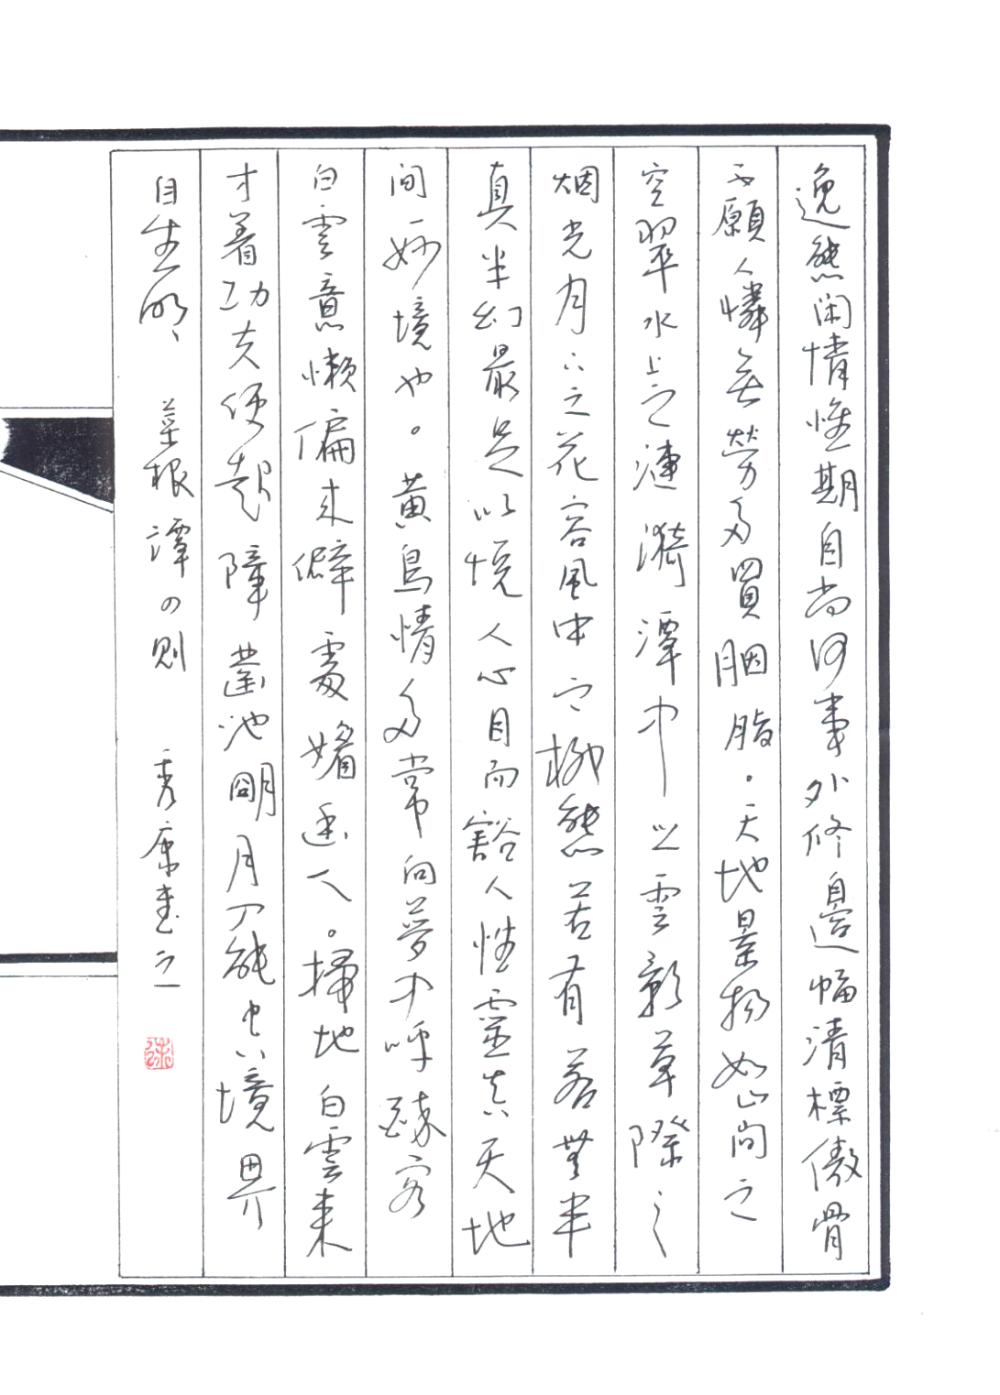 逸態閑情惟期自尚何事外修邊幅清標傲骨
不願人憐無勞多買胭脂。天地景物如山間之
空翠水上之漣漪潭中之雲影草際之
烟光月下之花容風中之柳態若有若無半
真半幻最足以悅人心目而豁人性靈真天地
間一妙境也。黃鳥情多常向夢中呼醉客
白雲意懶偏來僻處媚幽人。掃地白雲來
才着功夫便起障鑿池明月入能空境界
自生明、菜根譚の則 秀康書之